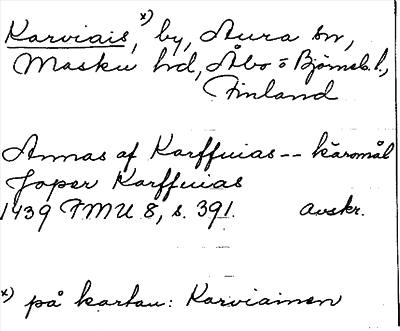 Karviais, x) by, Aura sn,
Masku hd, Åbo o Björneb. l.,
Finland
Annas af Karffuias -- käromål
Joper Karffuias
1439 FMU 8, s. 391. avskr.
x) på kartan: Karviainen